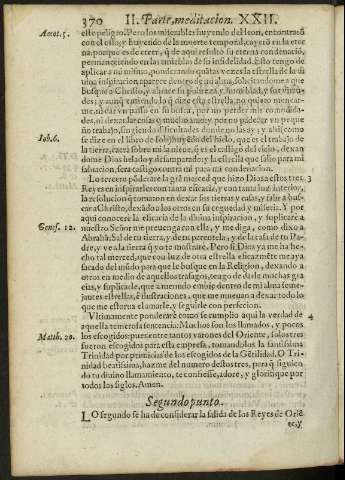 370 II. Parte, meditacion. XXII.
Amot. 5. este peligro. Pero los miserables huyendo del leon, entontrasõ
con el osso; y huyendo de la muerte temporal, cayerõ en la eter
na, porque es de creer, q̃ de aqui resultò su eterna condenaciõ,
permaneciendo en las tinieblas de su infidelidad. Esto tengo de
aplicar a mi mismo, ponderando quãtas vezes la estrella de la di
uina inspiracion, aparece dentro de mi alma, solicitandome a que
busque a Christo, y abrace su pobreza y humildad, y sus virtu-
des; y aunq̃ entiendo lo q̃ dize esta estrella, no quiero menear-
me, ni dar vn passo en su busca, por no perder mis comodida-
des, ni dexar las cosas q̃ mucho amo; y por no padecer vn peque
ño trabajo, fingiendo dificultades donde no las ay; y ahi como
Iob. 6. se dize en el libro de Iob, huyendo del hielo, que es el trabajo de
la tierra, caerà sobre mi la nieue, q̃ es el castigo del cielo, dexan
dome Dios helado y desamparado; y la estrella que salio para mi
saluacion, sera castigo contra mi para mi condenacion.
Lo tercero põderarè la grã merced que hizo Dios a estos tres 3
Reyes en inspirarles con tanta eficacia, y con tanta luz interior,
la resolucion q̃ tomaron en dexar sus tierras y casas, y salir a bus-
car a Christo, dexãdo los otros en su ceguedad y miseria. Y por
aqui conocerè la eficacia de la diuina inspiracion, y suplicarè a
Genes. 12. nuestro Señor me preuenga con ella, y me diga, como dixo a
Abrahã: Sal de tu tierra, y de tu parentela, y de la casa de tu Pa-
dre, y ve a la tierra q̃ yo te mostrarè. Pero si Dios ya me ha he-
cho tal merced, que con luz de otra estrella eficaz mẽte me aya
sacado del mũdo para que le busque en la Religion, dexando a
otros en medio de aquellos trafagos, tengo de darle muchas gra
cias, y suplicarle, que a menudo embie dentro de mi alma seme-
jantes estrellas, e ilustraciones, que me mueuan a dexar todo lo
que me estorua el amarle, y seguirle con perfeccion.
Vltimamente ponderarè como se cumplio aqui la verdad de 4
aquella temerosa sentencia: Muchos son los llamados, y pocos
Matth. 20. los escogidos: pues entre tantos varones del Oriente, solos tres
fueron escogidos para esta empresa, tomandolos la santissima
Trinidad por primicias de los escogidos de la Gẽtilidad. O Tri-
nidad beatissima, hazme del numero destos tres, para q̃ siguien
do tu diuino llamamiento, te confiesse, adore, y glorifique por
todos los siglos. Amen.
Segundo punto.
LO segundo se ha de considerar la salida de los Reyes de Oriẽ
te; y